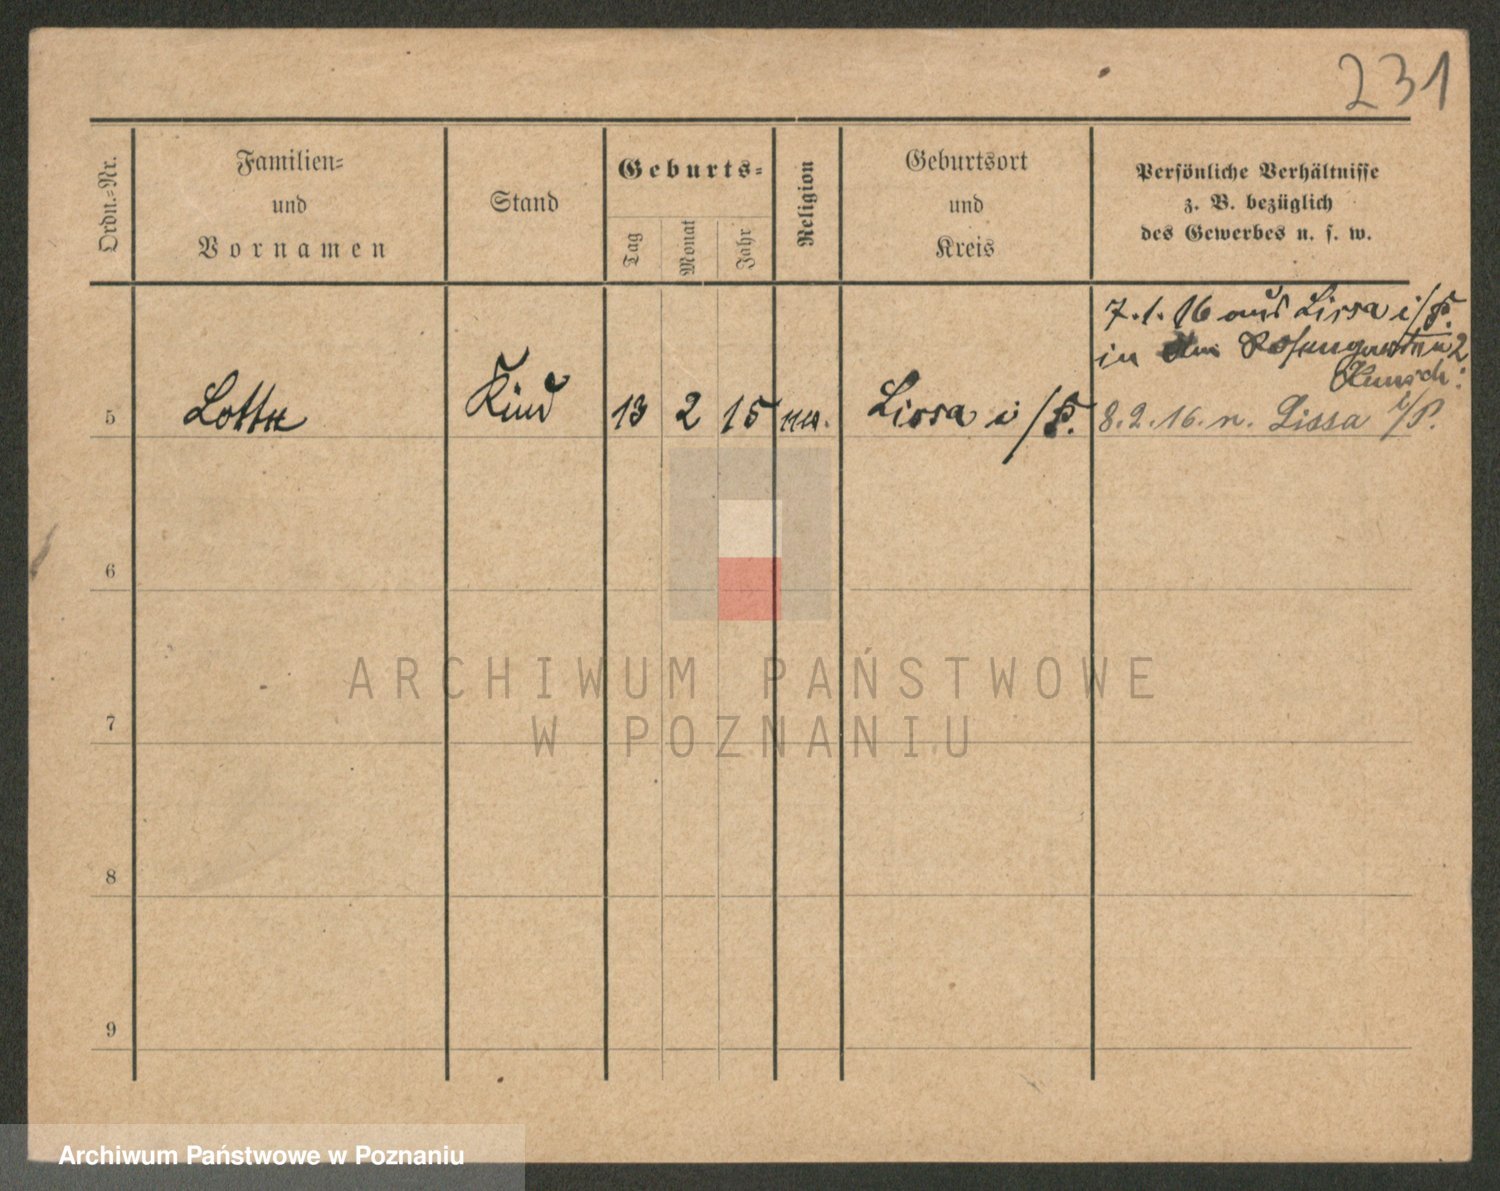 231
Ordn.-Nr.
Familien-
und
Vornamen
Stand
Geburts-
Tag
Monat
Jahr
Religion
Geburtsort
und
Kreis
Persönliche Verhältnisse
z. B. bezüglich
des Gewerbes u. s. w.
7.1.16 aus Lissa i/P.
in Rosengarten 2
5 Lotte Kind 13 2 15 Lissa i/P. 8.2.16. n. Lissa i/P.
6
7
8
9
ARCHIWUM PAŃSTWOWE
W POZNANIU
Archiwum Państwowe w Poznaniu